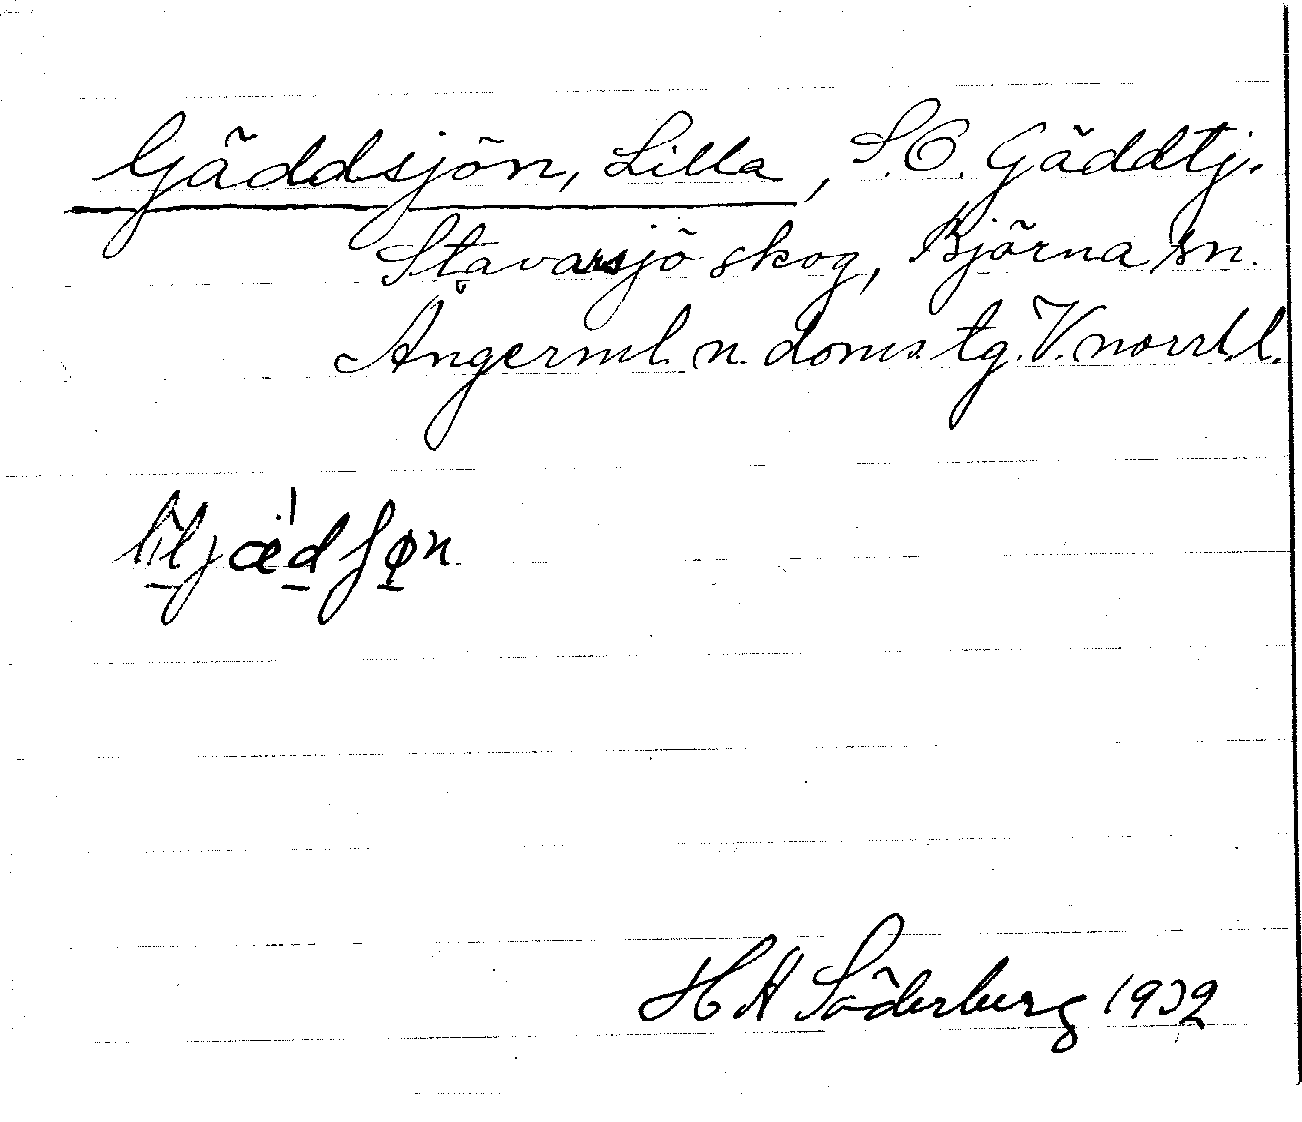 Gäddsjön, Lilla, S.O. Gäddtj.
Stavarsjö skog, Björna sn.
Ångerml. n. doms. tg. V.norrl.l.
H H Söderberg 1932